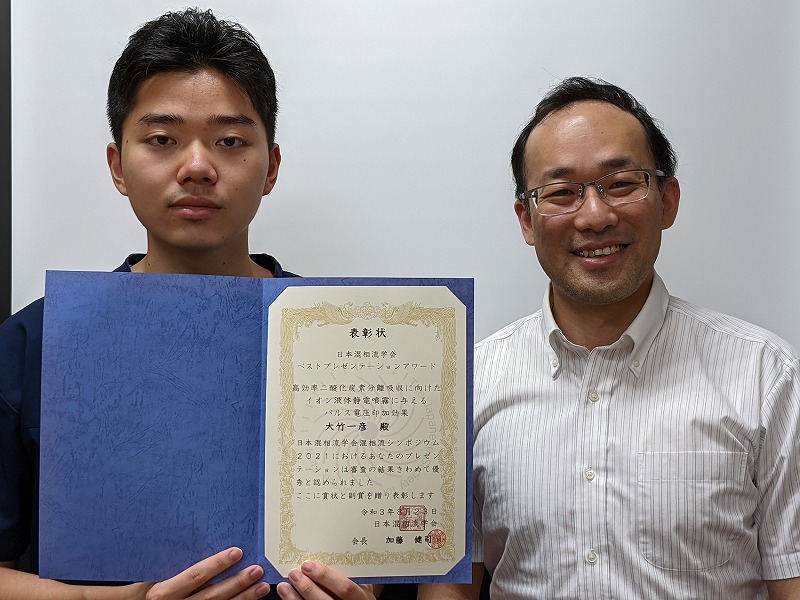 表彰状
日本混相流学会
ベストプレゼンテーションアワード
高効率二酸化炭素分離吸収に向けた
イオン液体静電噴霧に与える
パルス電圧印加効果
大竹一彦 殿
日本混相流学会混相流シンポジウム
2021におけるあなたのプレゼン
テーションは審査の結果きわめて優
秀と認められました
ここに賞状と副賞を贈り表彰します
令和3年8月23日
日本混相流学会
会長 加藤 健司